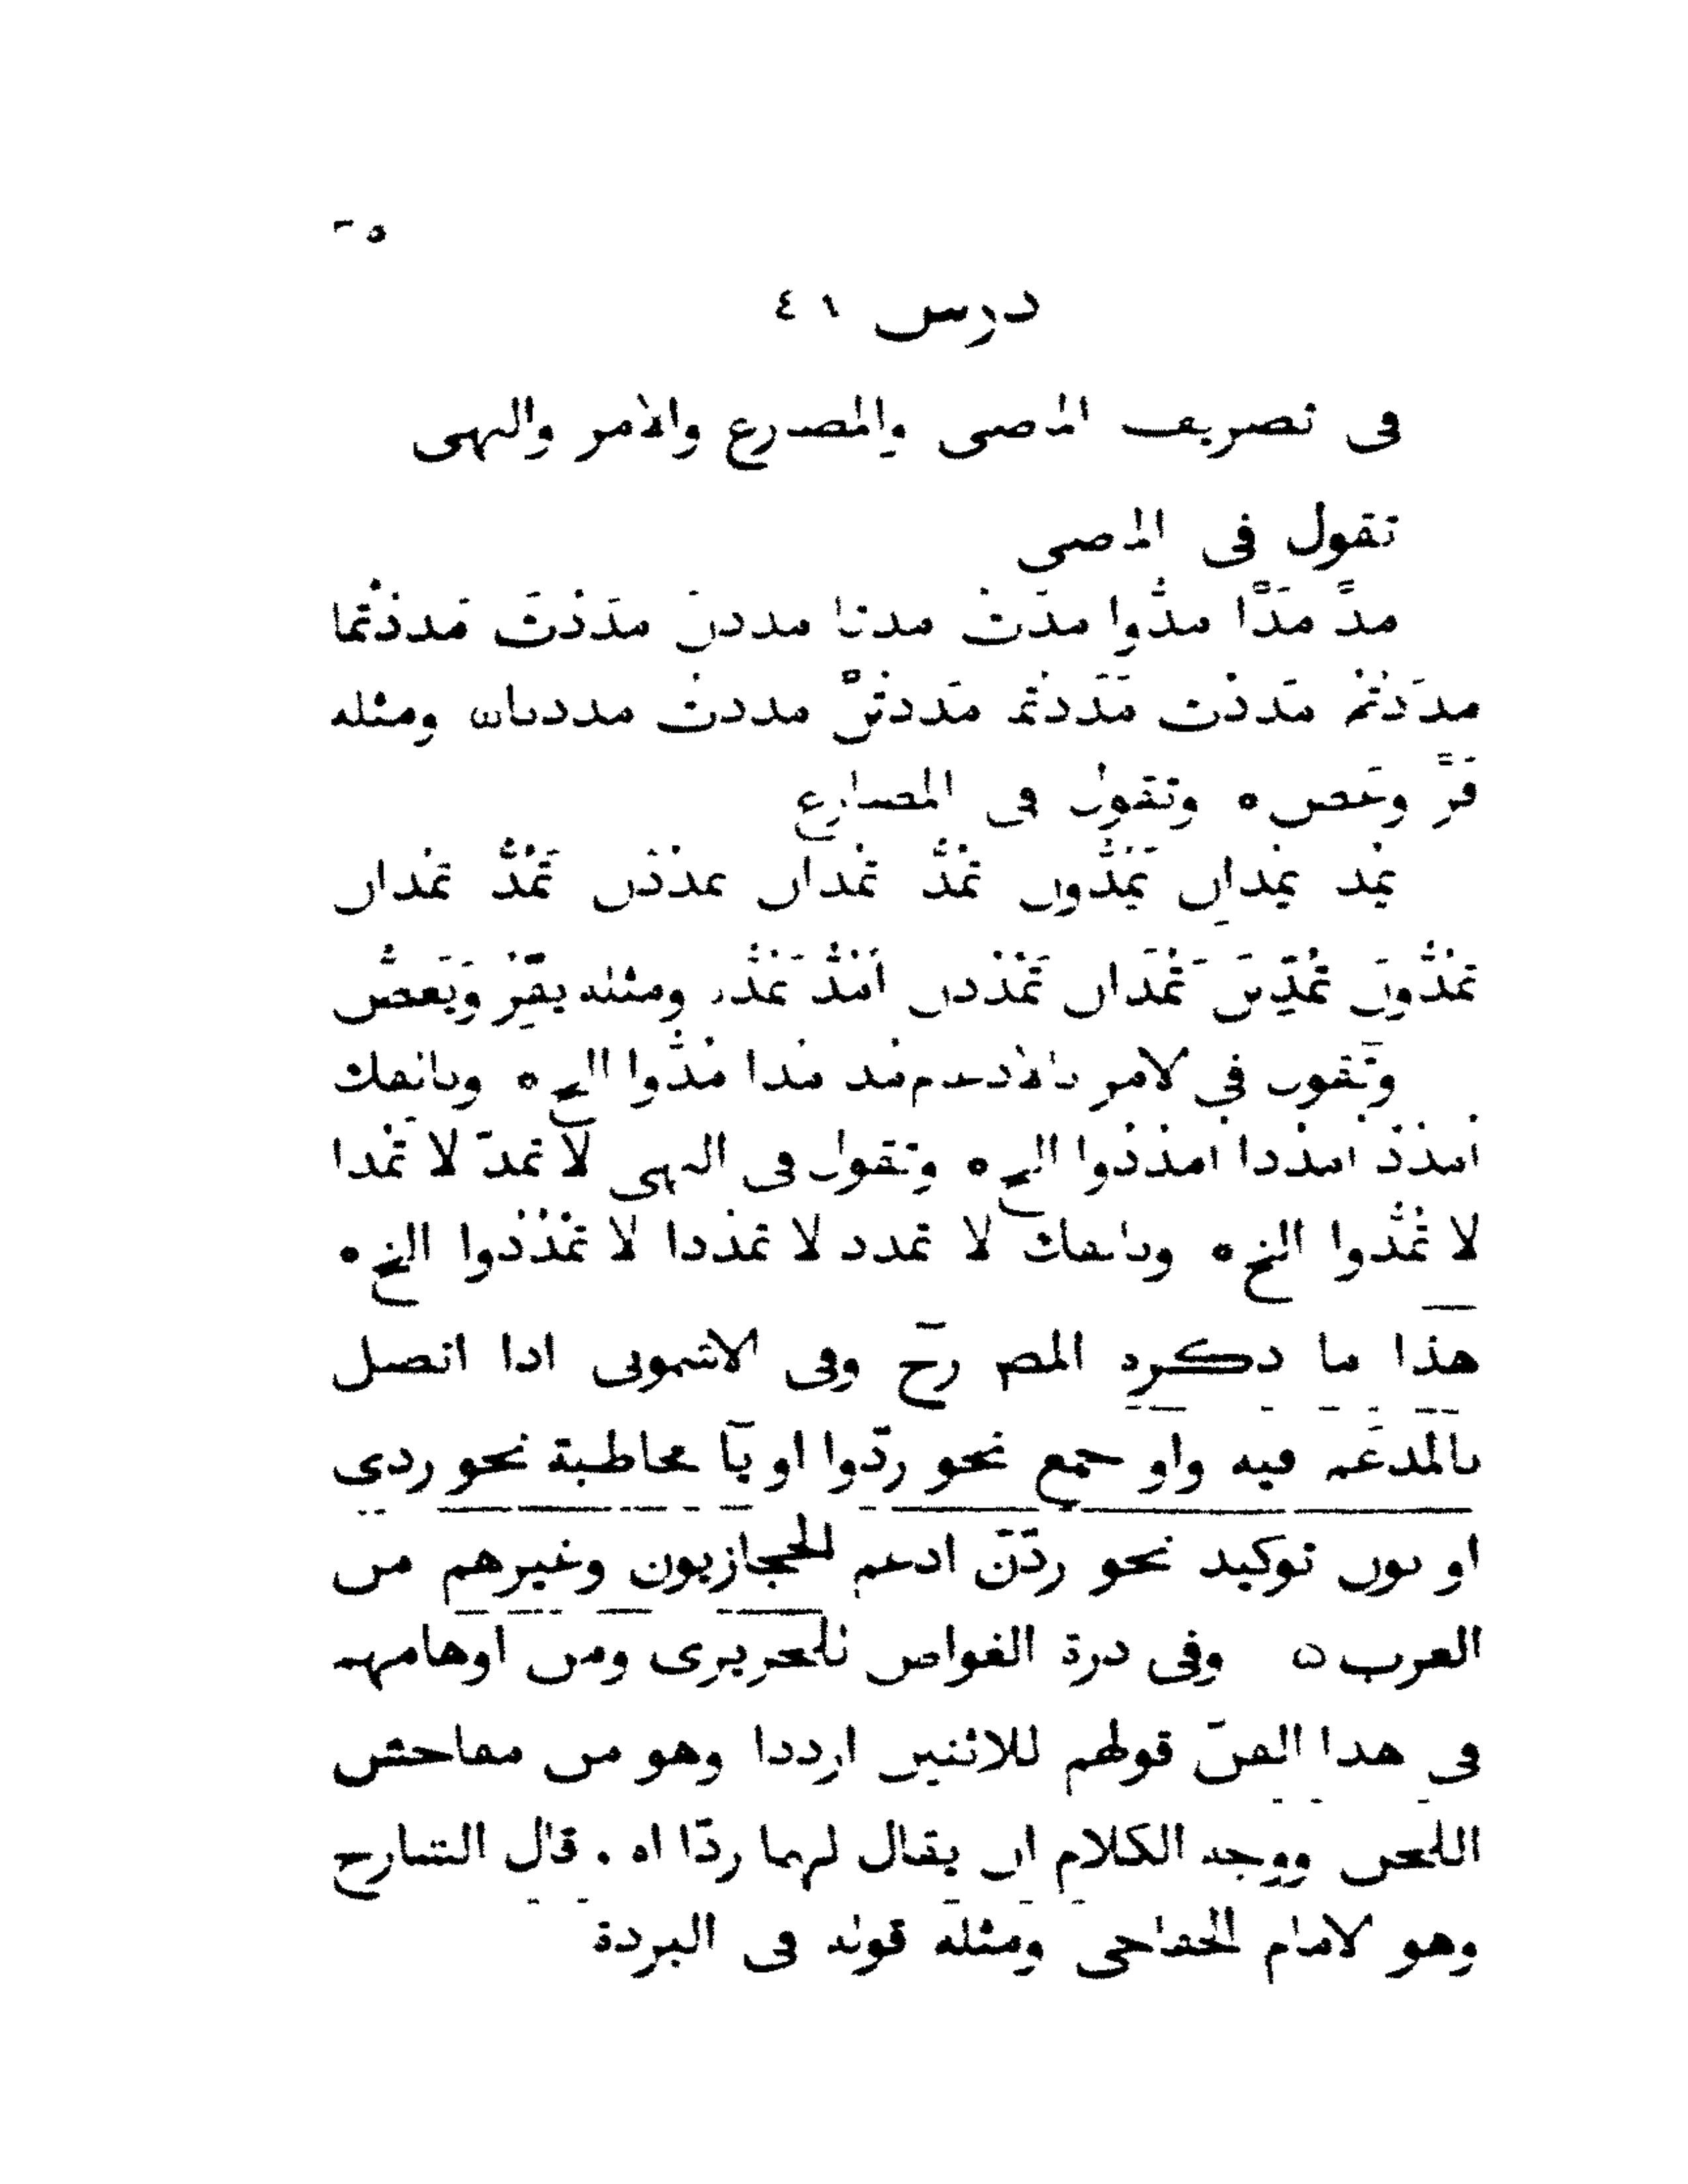 درس ٤١
فى تصريف الماضى والمضارع والامر والنهى
تقول فى الماضى
مدَّ مَدَّا مدُّوا مدَّتْ مدتا مددن مدَدْتَ مَددْتُما
مدَدْتُمْ مَددْتِ مَدَدْتما مَددتنَّ مددتُ مددنا ومثله
فَرَّ وعَض ٥ وتقول فى المضارع
يمُد يمُدانِ يَمُدُّون تمُدُّ تمُدان يمدُدْن تَمُدُّ تمُدان
تمُدُّونَ تمُدِّينَ تَمُدَان تَمْدُدن اَمُدُّ نَمُدُّ ومثله يفِرُّ وَيَعضُّ
وتَقول فى الامر بالادغام مُد مُدا مُدُّوا الخ ٥ وبالفك
اُمدُدْ امدُدا امدُدُوا الخ ٥ وتقول فى النهى لا تمدّ لا تمُدا
لا تمُدُّوا الخ ٥ وبالفك لا تمدد لا تمدُدا لا تمْدُدوا الخ ٥
هذا ما ذكره المص رحّ وفى الاشمونى اذا اتصل
بالمدغَم فيه واو جمع نحو ردّوا او يآ مخاطبة نحو ردى
او نون توكيد نحو ردّنّ ادغم الحجازيون وغيرهم من
العرب ٥ وفى درة الغواص للحريرى ومن اوهامهم
فى هذا الفنّ قولهم للاثنين ارددا وهو من مفاحش
اللحن ووجه الكلام ان يقال لهما ردّا اه . قال الشارح
وهو الامام الخفاجى ومثله قوله فى البردة